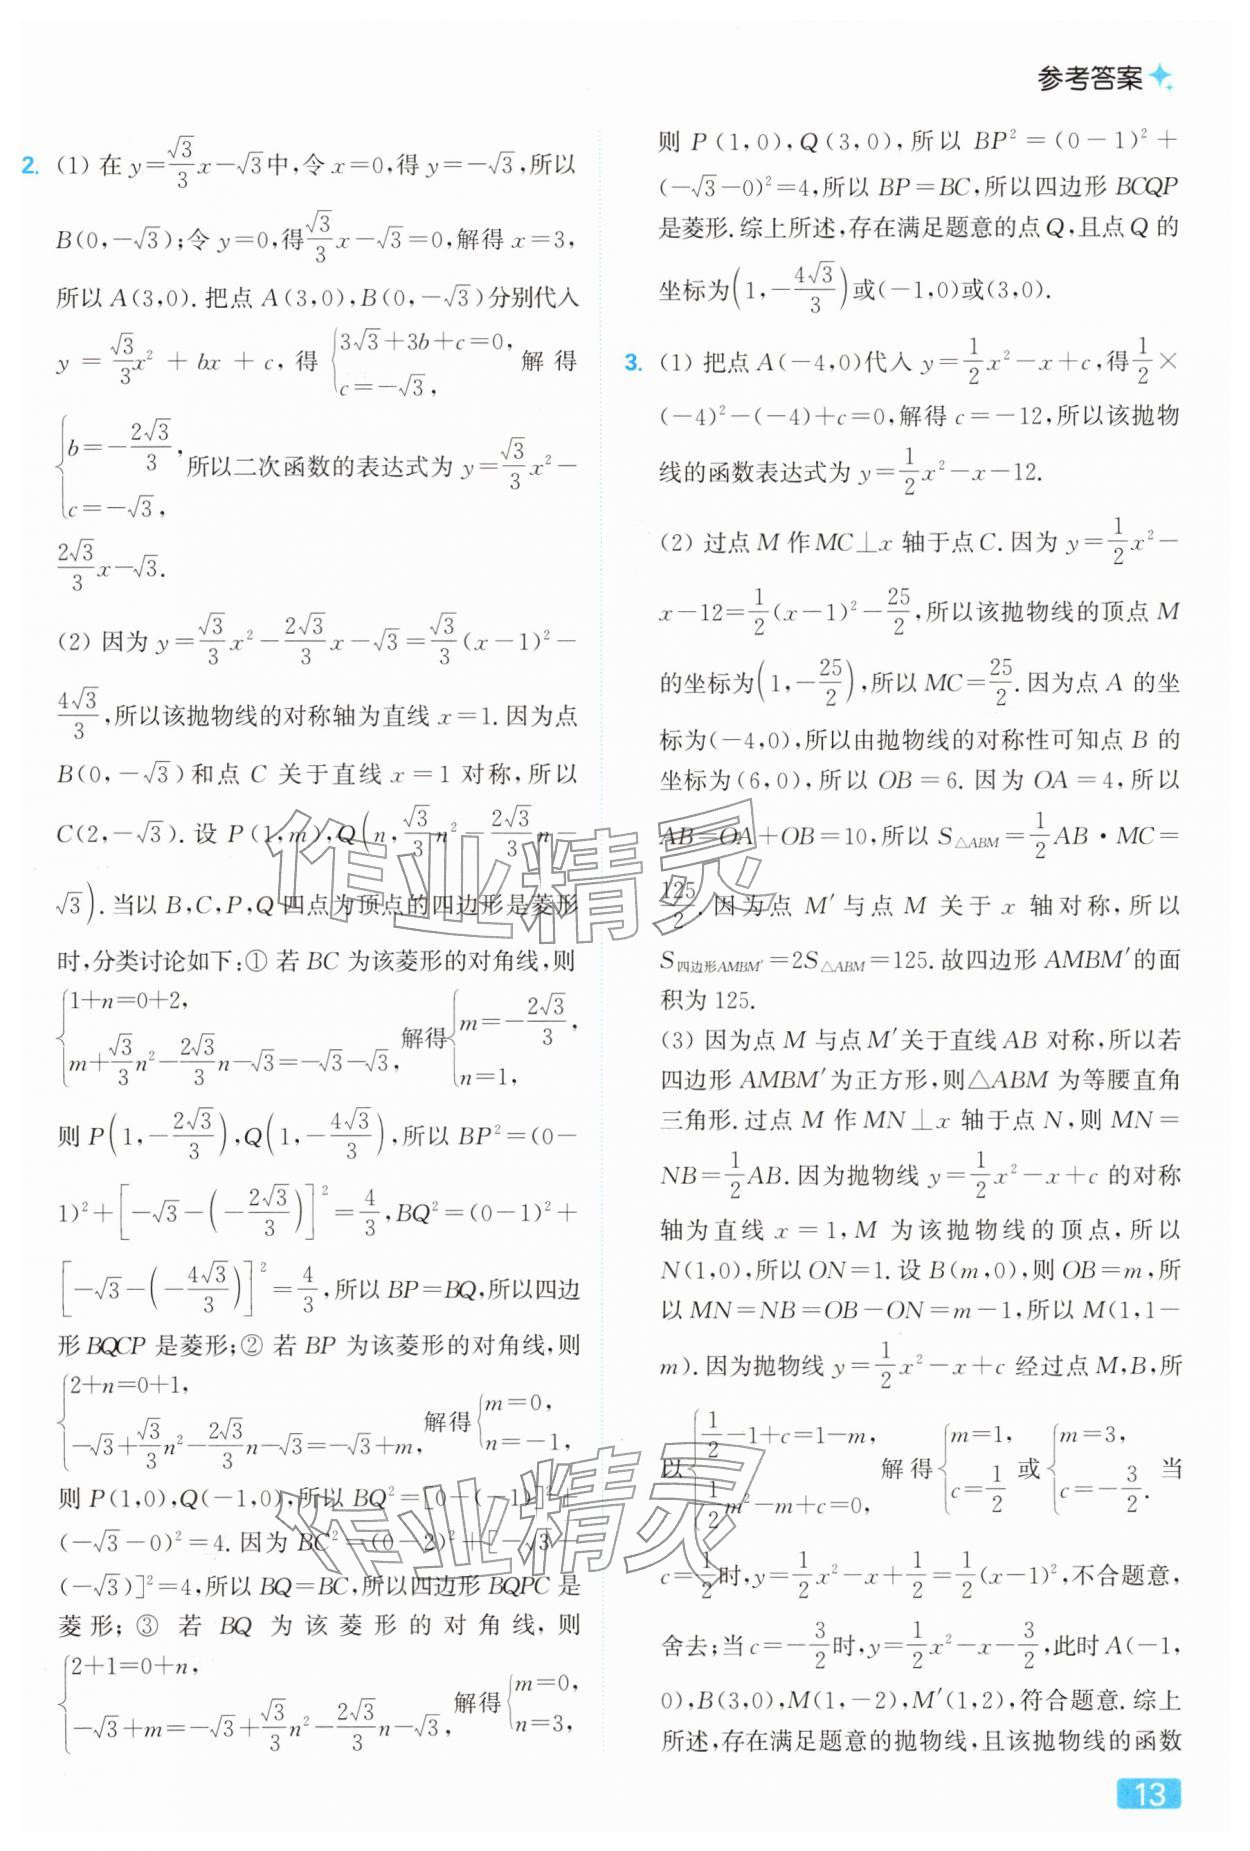 参考答案
2. (1) 在 y=√3/3x-√3中,令 x=0,得 y=-√3,所以
B(0,-√3);令 y=0,得√3/3x-√3=0,解得 x=3,
所以 A(3,0).把点 A(3,0),B(0,-√3)分别代入
y=√3/3x²+bx+c,得{3√3+3b+c=0, c=-√3, 解得
{b=-2√3/3, c=-√3, 所以二次函数的表达式为 y=√3/3x²-
2√3/3x-√3.
(2) 因为 y=√3/3x²-2√3/3x-√3=√3/3(x-1)²-
4√3/3,所以该抛物线的对称轴为直线 x=1.因为点
B(0,-√3)和点 C 关于直线 x=1 对称,所以
C(2,-√3).设 P(1,m),Q(n,√3/3n²-2√3/3n-
√3).当以 B,C,P,Q 四点为顶点的四边形是菱形
时,分类讨论如下:① 若 BC 为该菱形的对角线,则
{1+n=0+2, m+√3/3n²-2√3/3n-√3=-√3-√3, 解得{m=-2√3/3, n=1,
则 P(1,-2√3/3),Q(1,-4√3/3),所以 BP²=(0-
1)²+[-√3-(-2√3/3)]²=4/3,BQ²=(0-1)²+
[-√3-(-4√3/3)]²=4/3,所以 BP=BQ,所以四边
形 BQCP 是菱形;② 若 BP 为该菱形的对角线,则
{2+n=0+1, -√3+√3/3n²-2√3/3n-√3=-√3+m, 解得{m=0, n=-1,
则 P(1,0),Q(-1,0),所以 BQ²=[0-(-1)]²+
(-√3-0)²=4.因为 BC²=(0-2)²+[-√3-
(-√3)]²=4,所以 BQ=BC,所以四边形 BQPC 是
菱形;③ 若 BQ 为该菱形的对角线,则
{2+1=0+n, -√3+m=-√3+√3/3n²-2√3/3n-√3, 解得{m=0, n=3,
则 P(1,0),Q(3,0),所以 BP²=(0-1)²+
(-√3-0)²=4,所以 BP=BC,所以四边形 BCQP
是菱形.综上所述,存在满足题意的点 Q,且点 Q 的
坐标为(1,-4√3/3)或(-1,0)或(3,0).
3. (1) 把点 A(-4,0)代入 y=1/2x²-x+c,得1/2×
(-4)²-(-4)+c=0,解得 c=-12,所以该抛物
线的函数表达式为 y=1/2x²-x-12.
(2) 过点 M 作 MC⊥x 轴于点 C.因为 y=1/2x²-
x-12=1/2(x-1)²-25/2,所以该抛物线的顶点 M
的坐标为(1,-25/2),所以 MC=25/2.因为点 A 的坐
标为(-4,0),所以由抛物线的对称性可知点 B 的
坐标为(6,0),所以 OB=6.因为 OA=4,所以
AB=OA+OB=10,所以 S△ABM=1/2AB·MC=
125/2.因为点 M′与点 M 关于 x 轴对称,所以
S四边形AMBM′=2S△ABM=125.故四边形 AMBM′的面
积为 125.
(3) 因为点 M 与点 M′关于直线 AB 对称,所以若
四边形 AMBM′为正方形,则△ABM 为等腰直角
三角形.过点 M 作 MN⊥x 轴于点 N,则 MN=
NB=1/2AB.因为抛物线 y=1/2x²-x+c 的对称
轴为直线 x=1,M 为该抛物线的顶点,所以
N(1,0),所以 ON=1.设 B(m,0),则 OB=m,所
以 MN=NB=OB-ON=m-1,所以 M(1,1-
m).因为抛物线 y=1/2x²-x+c 经过点 M,B,所
以{1/2-1+c=1-m, 1/2m²-m+c=0, 解得{m=1, c=1/2 或{m=3, c=-3/2. 当
c=1/2时,y=1/2x²-x+1/2=1/2(x-1)²,不合题意,
舍去;当 c=-3/2时,y=1/2x²-x-3/2,此时 A(-1,
0),B(3,0),M(1,-2),M′(1,2),符合题意.综上
所述,存在满足题意的抛物线,且该抛物线的函数
13
作业精灵
作业精灵